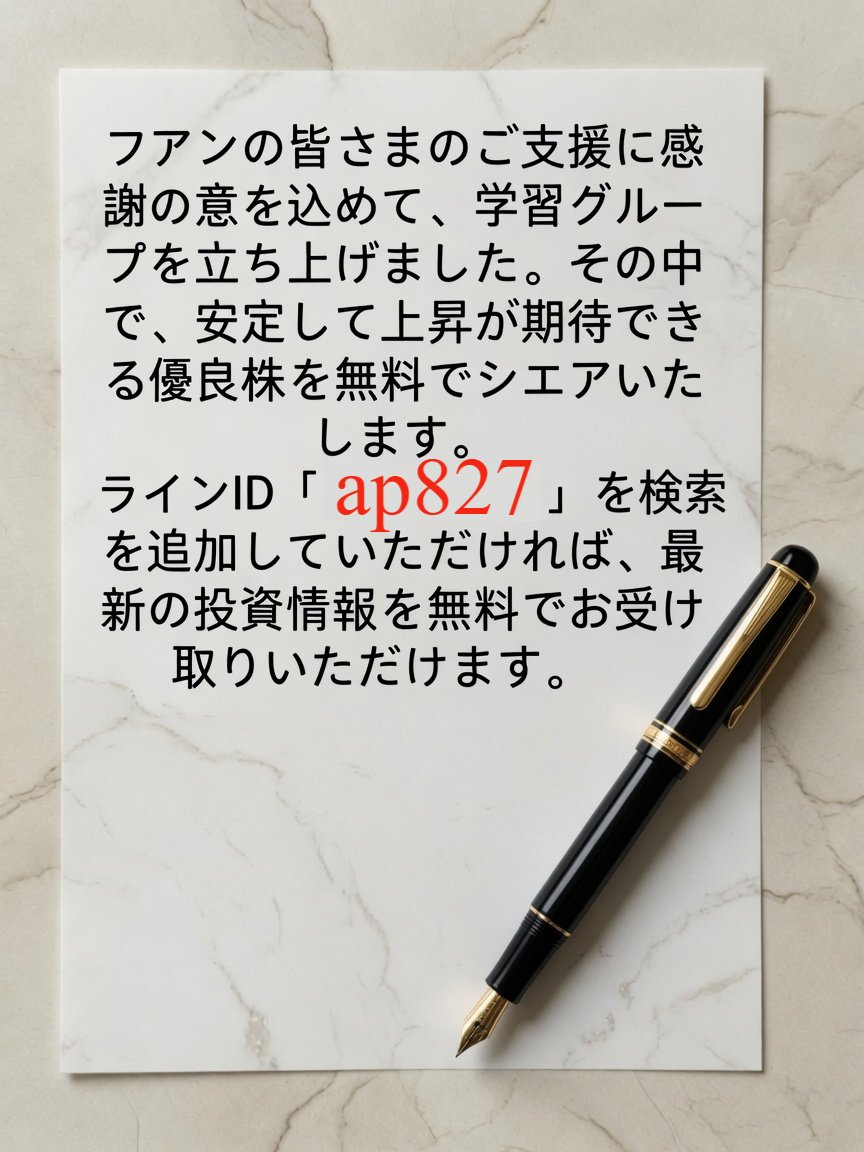 フアンの皆さまのご支援に感
謝の意を込めて、学習グルー
プを立ち上げました。その中
で、安定して上昇が期待でき
る優良株を無料でシエアいた
します。
ラインID「 ap827 」を検索
を追加していただければ、最
新の投資情報を無料でお受け
取りいただけます。